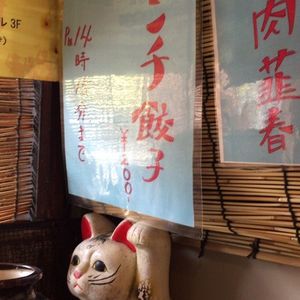 ル 3F
ンチ餃子
¥200
PM14時 分まで
肉韮春